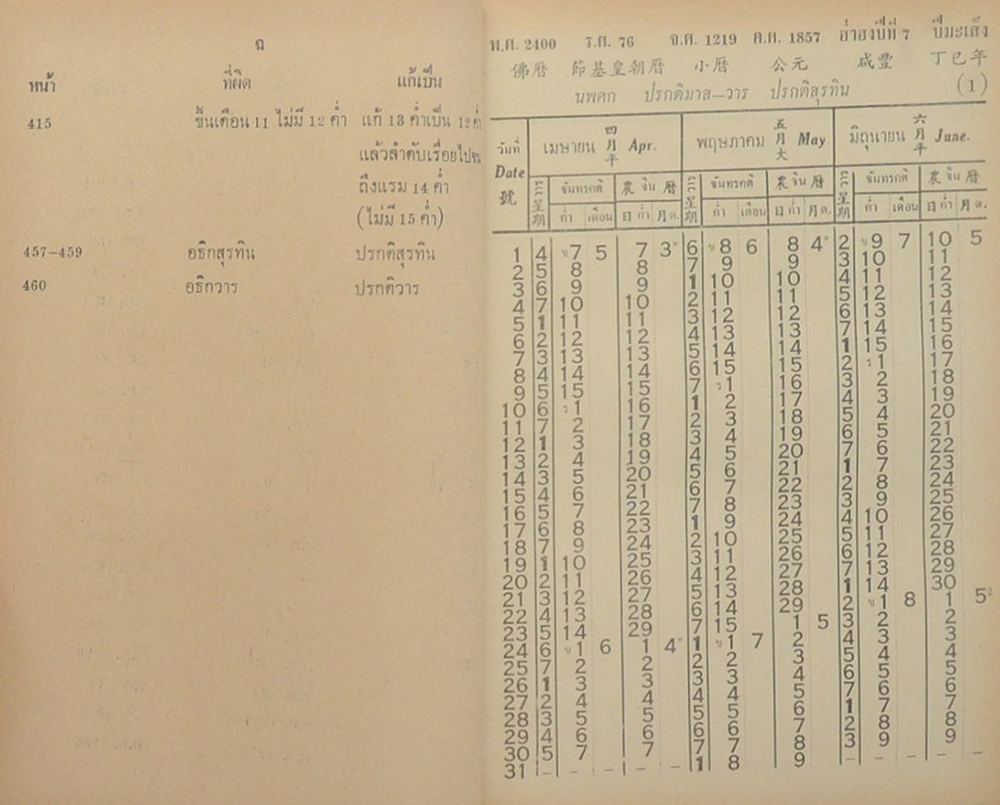 ฉ
หน้า ที่ผิด แก้เป็น
415 ขึ้นเดือน 11 ไม่มี 12 ค่ำ แก้ 13 ค่ำเป็น 12 ค่ำ
แล้วลำดับเรื่อยไปจน
ถึงแรม 14 ค่ำ
(ไม่มี 15 ค่ำ)
457–459 อธิกสุรทิน ปรกติสุรทิน
460 อธิกวาร ปรกติวาร
พ.ศ. 2400 ร.ศ. 76 จ.ศ. 1219 ค.ศ. 1857 ฮ่าฮงปีที่ 7 ปีมะเส็ง
佛曆 節基皇朝曆 小曆 公元 咸豐 丁巳年
นพศก ปรกติมาส–วาร ปรกติสุรทิน (1)
วันที่ Date 號 เมษายน 四月平 Apr. พฤษภาคม 五月大 May มิถุนายน 六月平 June.
วาร 星期 จันทรคติ 農 จีน 曆 วาร 星期 จันทรคติ 農 จีน 曆 วาร 星期 จันทรคติ 農 จีน 曆
ค่ำ เดือน 日 ค่ำ 月 ด. ค่ำ เดือน 日 ค่ำ 月 ด. ค่ำ เดือน 日 ค่ำ 月 ด.
1 4 ข7 5 7 3 6 ข8 6 8 4 2 ข9 7 10 5
2 5 8 8 7 9 9 3 10 11
3 6 9 9 1 10 10 4 11 12
4 7 10 10 2 11 11 5 12 13
5 1 11 11 3 12 12 6 13 14
6 2 12 12 4 13 13 7 14 15
7 3 13 13 5 14 14 1 15 16
8 4 14 14 6 15 15 2 ร1 17
9 5 15 15 7 ร1 16 3 2 18
10 6 ร1 16 1 2 17 4 3 19
11 7 2 17 2 3 18 5 4 20
12 1 3 18 3 4 19 6 5 21
13 2 4 19 4 5 20 7 6 22
14 3 5 20 5 6 21 1 7 23
15 4 6 21 6 7 22 2 8 24
16 5 7 22 7 8 23 3 9 25
17 6 8 23 1 9 24 4 10 26
18 7 9 24 2 10 25 5 11 27
19 1 10 25 3 11 26 6 12 28
20 2 11 26 4 12 27 7 13 29
21 3 12 27 5 13 28 1 14 30
22 4 13 28 6 14 29 2 ข1 8 1 5²
23 5 14 29 7 15 1 5 3 2 2
24 6 ข1 6 1 4 1 ข1 7 2 4 3 3
25 7 2 2 2 2 3 5 4 4
26 1 3 3 3 3 4 6 5 5
27 2 4 4 4 4 5 7 6 6
28 3 5 5 5 5 6 1 7 7
29 4 6 6 6 6 7 2 8 8
30 5 7 7 7 7 8 3 9 9
31 – – – – – 1 8 9 – – – – –